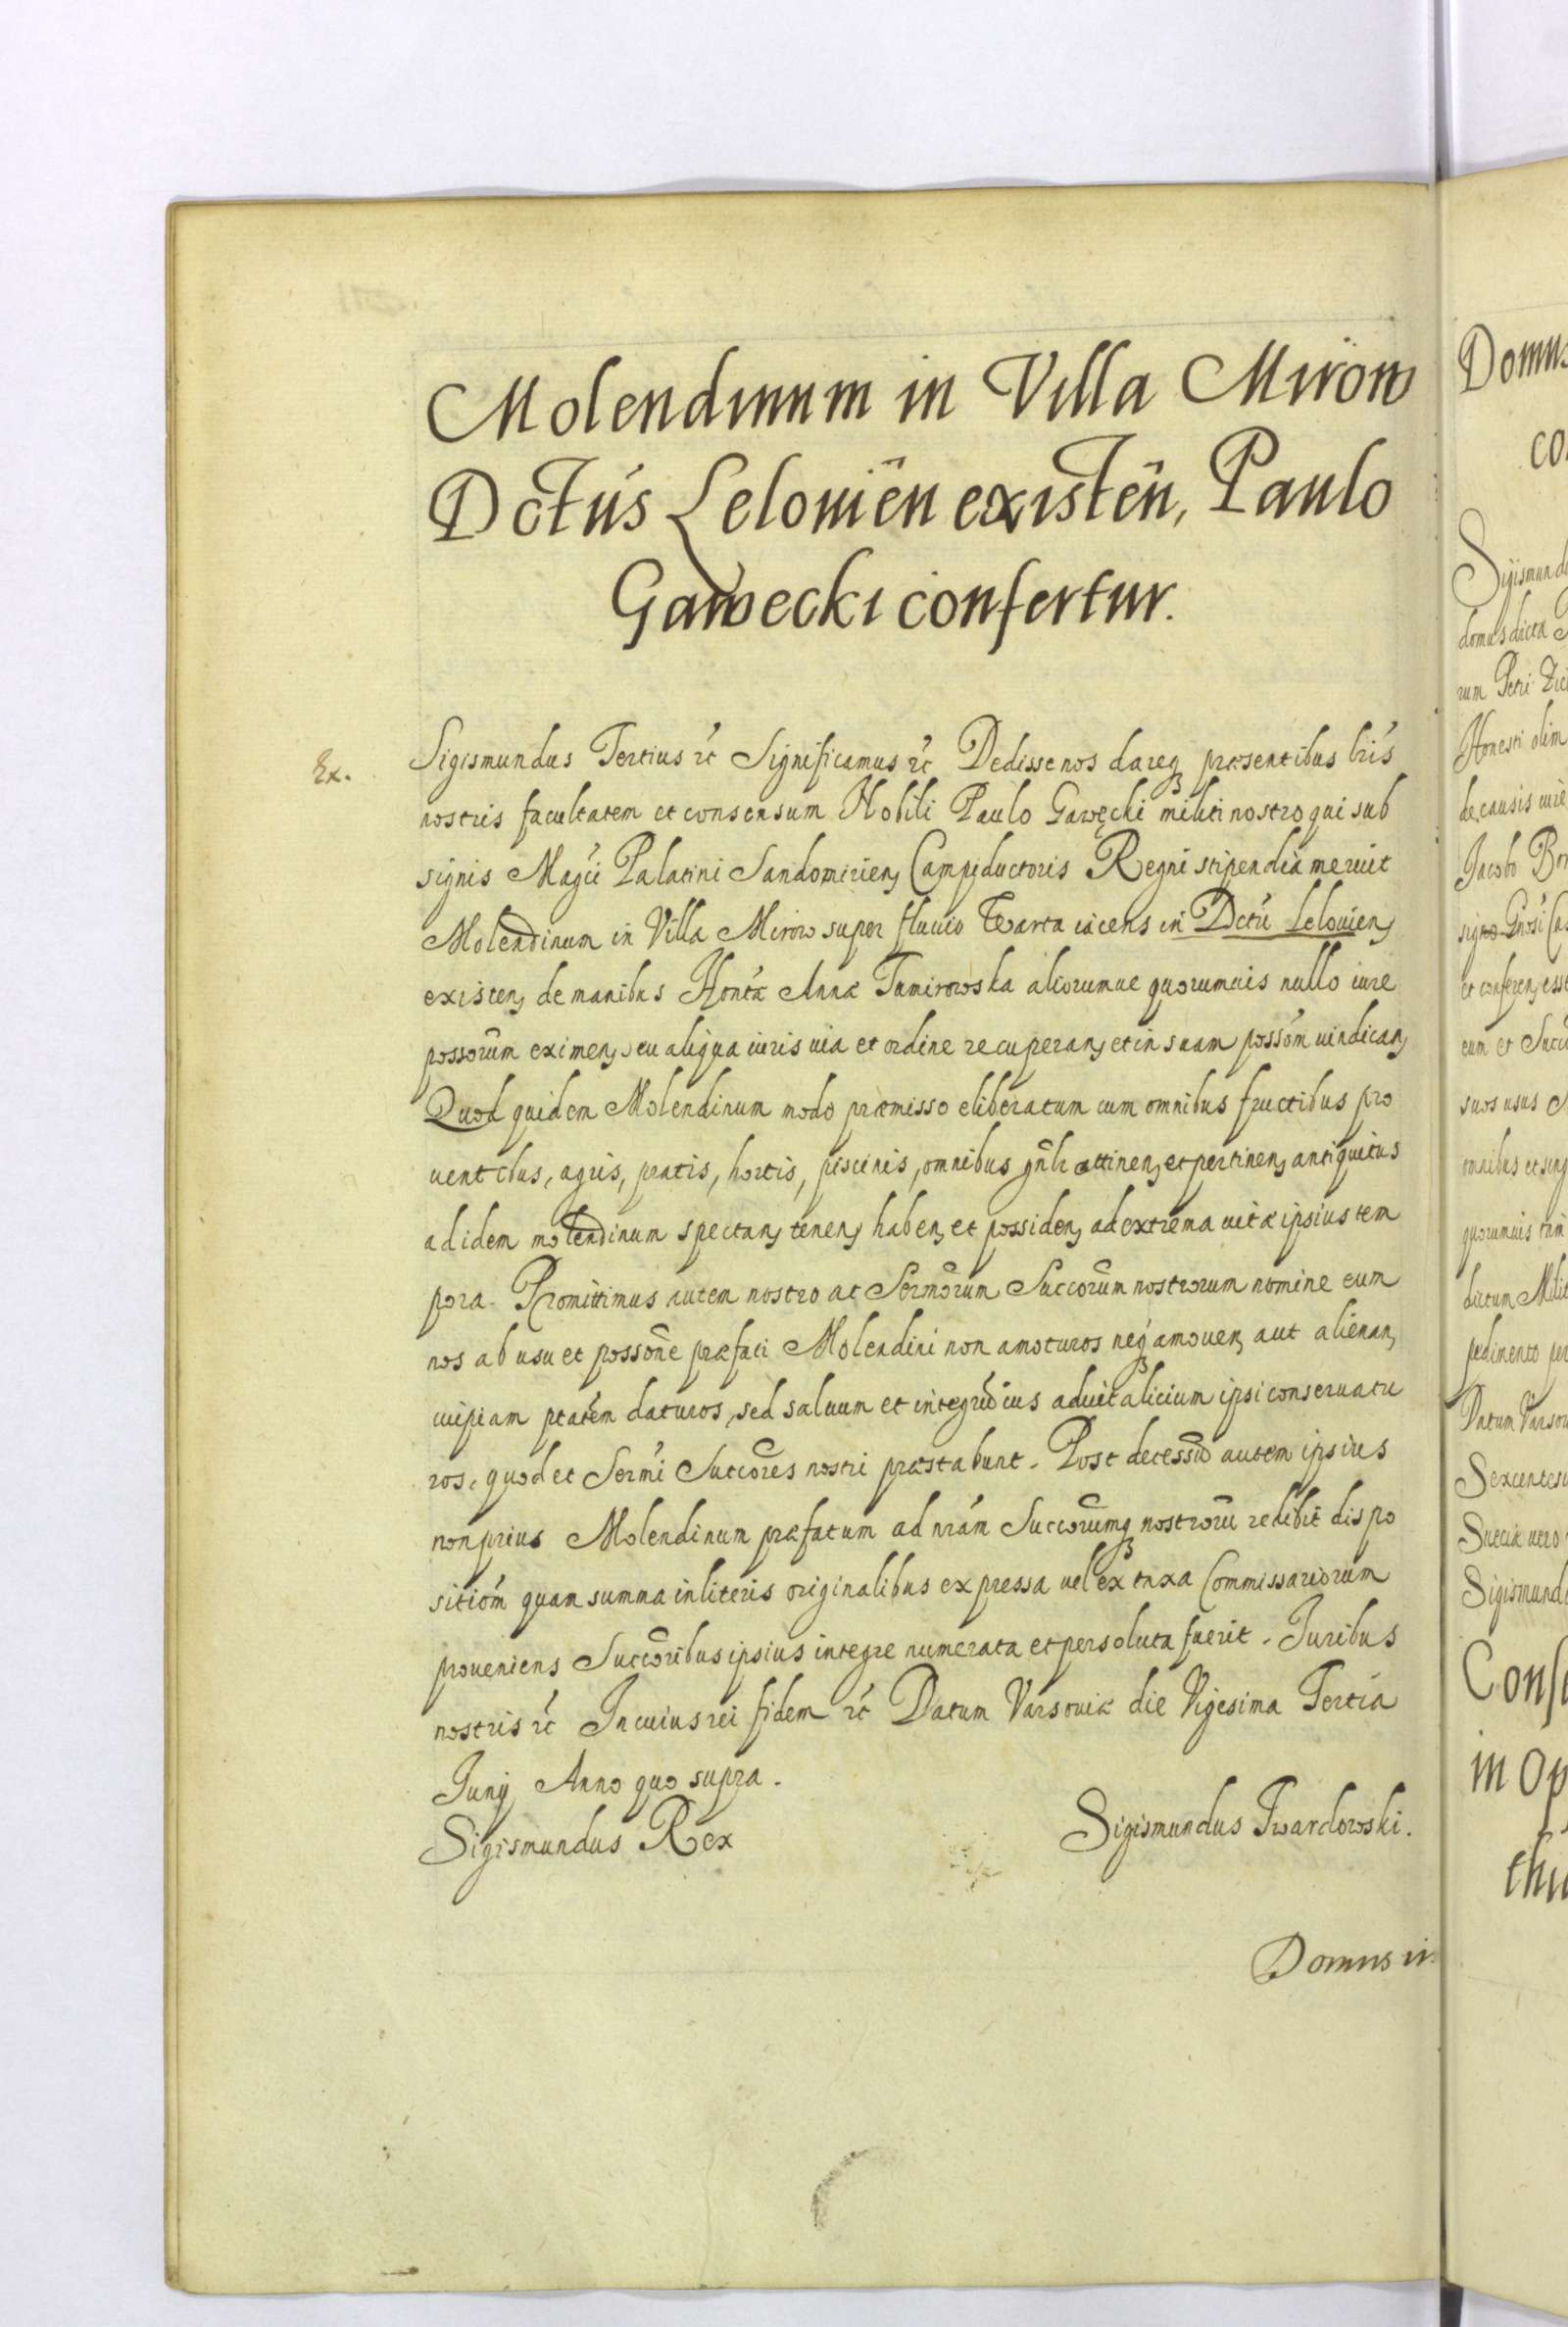 Molendinum in Villa Mirow
Dctús Lelouień existeñ, Paulo
Gawecki confertur.
Ex.
Sigismundus Tertius ꝛc̃ Significamus ꝛc̃ Dedisse nos dareqꝫ præsentibus lr̃is
nostris facultatem et consensum Nobili Paulo Gawęcki militi nostro qui sub
signis Magci Palatini Sandomirienꝫ Campiductoris Regni stipendia meruit
Molendinum in Villa Mirow super fluuio Warta iacens in Dctũ Lelouienꝫ
existenꝫ de manibus Honta Annæ Tumirowska aliorumue quorumuis nullo iure
possorũm eximenꝫ seu aliqua iuris uia et ordine recuperanꝫ et in suam possom̃ uindicanꝫ
Quod quidem Molendinum modo præmisso eliberatum cum omnibus fructibus pro
uentibus, agris, pratis, hortis, piscinis, omnibus gñlr attinenꝫ et pertinenꝫ antiquitus
ad idem molendinum spectanꝫ tenenꝫ habenꝫ et possidenꝫ ad extrema uitæ ipsius tem
pora. Promittimus autem nostro ac Sermorum Succorũm nostrorum nomine eum
nos ab usu et possoñe præfati Molendini non amoturos neqꝫ amouenꝫ aut alienanꝫ
cuipiam ptatẽm daturos, sed saluum et integrũ ius aduitalicium ipsi conseruatu
ros, quod et Sermi Succores nostri præstabunt. Post decessũ autem ipsius
non prius Molendinum præfatum ad nrám Succorumqꝫ nostrorũ redibit dispo
sitióm quam summa in literis originalibus expressa uel ex taxa Commissariorum
proueniens Succoribus ipsius integre numerata et persoluta fuerit. Iuribus
nostris ꝛc̃ In cuius rei fidem ꝛc̃ Datum Varsouiæ die Vigesima Tertia
Iunij Anno quo supra.
Sigismundus Rex
Sigismundus Twardowski.
Domus in
Domus
Sigismund
domus dicta
rum Petri
Honesti olim
de causis
Jacobo
et conferenꝫ
eum et
suos usus
omnibus et
quorumuis
dictum Milit
pedimento per
Datum Varsou
Sexcentesi
Sueciæ uero
Sigismund
Conse
in Op